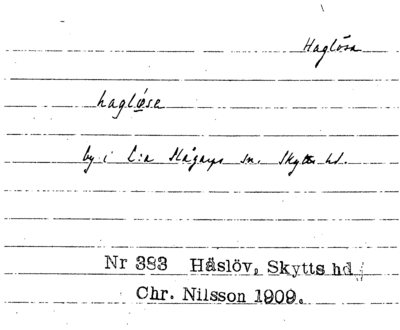 Haglösa
haglöse
by i L:a Slågarps sn. Skytts hd.
Nr 383 Häslöv, Skytts hd
Chr. Nilsson 1909.